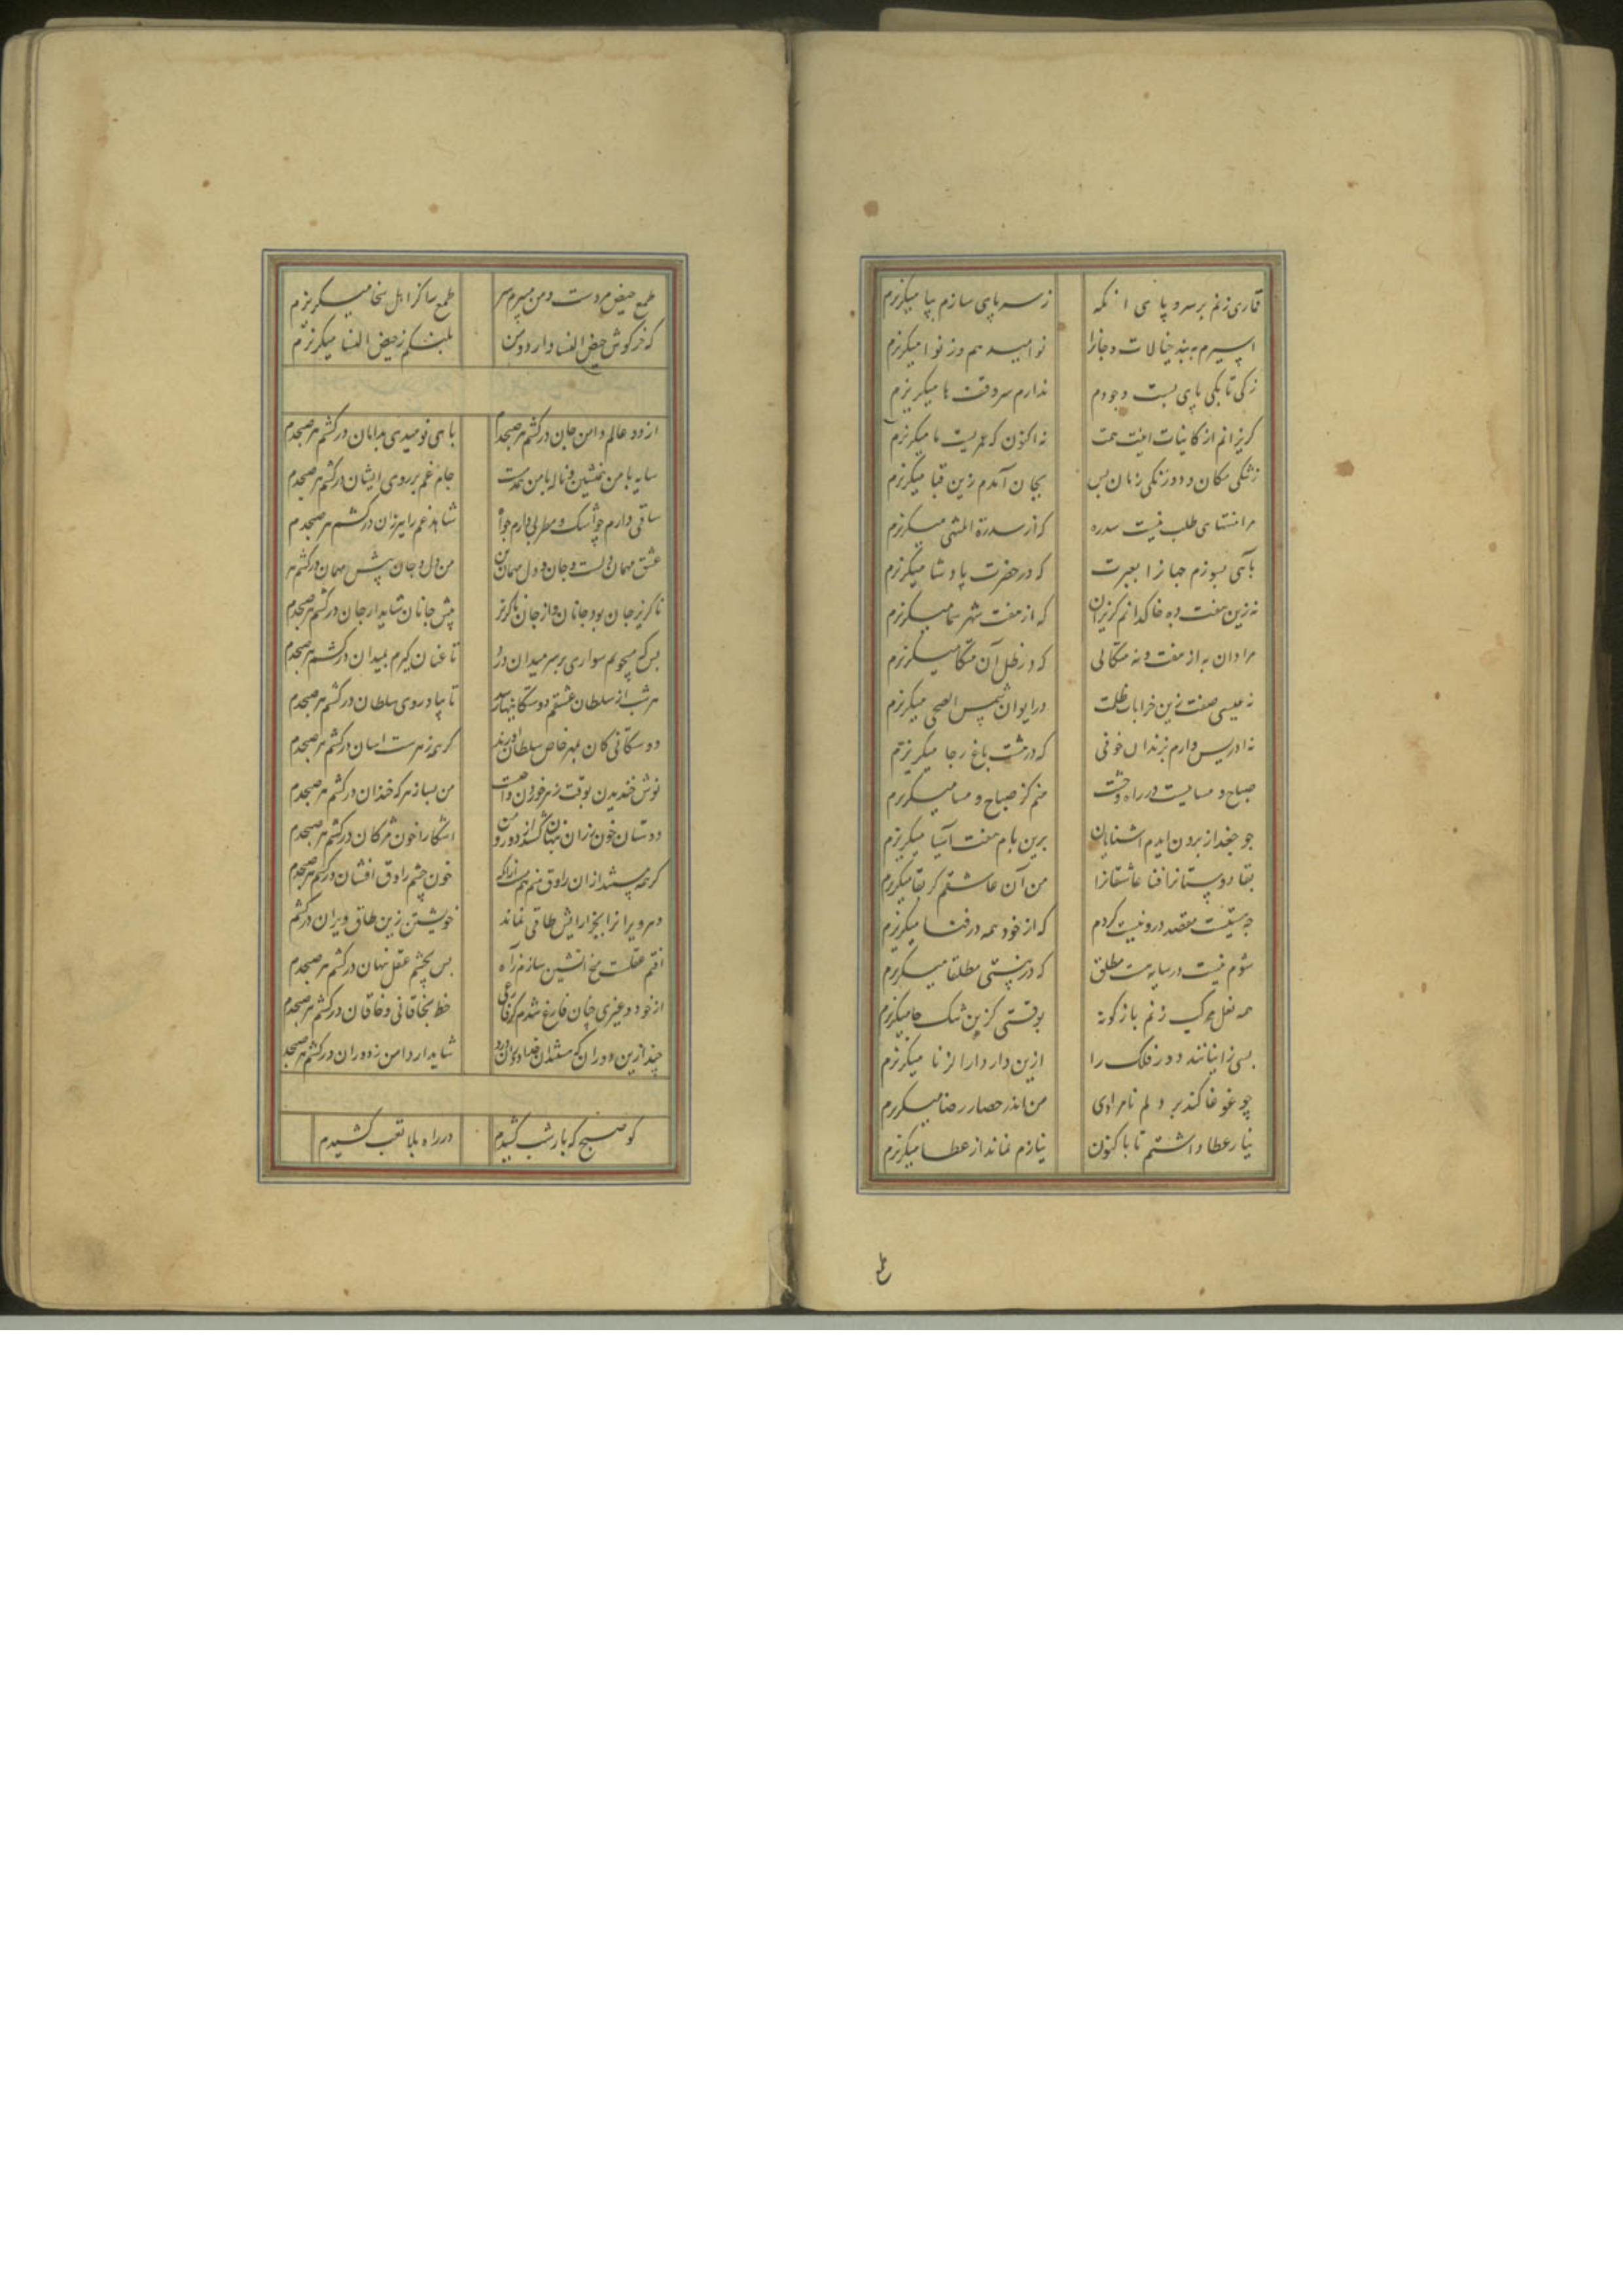 قماری زنم بر سر و پای آنگه ز سر پای سازم بپا میگریزم
اسیرم به بند خیالات و جانرا نوا میدهم وز نوا میگریزم
زکی تا بکی پای بست وجودم ندارم سر و قت ها میگریزم
گریزانم از کاینات اینت همت نه اکنون که عمریست تا میگریزم
ز تنگی مکان و دورنگی زمان بس بجان آمدم زین قبا میگریزم
مرا منتهای طلب نیست سدره که از سدرة المنتهی میگریزم
بآهی بسوزم جهانرا بغیرت که در حضرت پادشا میگریزم
نه زین هفت ده خاکدانم گریزان که از هفت شهر سما میگریزم
مرا دان به از هفت و نه متکائی که در ظل آن متکا میگریزم
نه عیسی صفت زین خرابات ظلمت در ایوان شمس الضحی میگریزم
نه ادریس وارم بزندان خوفی که در هشت باغ رجا میگریزم
صباح و مسا نیست در راه وحدت منم کز صباح و مسا میگریزم
جو جغد از برون ایدم اشنایان برین بام هفت آسیا میگریزم
بقا دوستانرا فنا عاشقانرا من آن عاشقم کز بقا میگریزم
جه هستیست مقصد درو نیست کردم که از خود همه در فنا میگریزم
شوم نیست در سایه هست مطلق که در نیستی مطلقا میگریزم
همه نعل مرکب زنم باژگونه بوقتی کزین تنگ جا میگریزم
بسی زانیانند دور فلک را ازین دار دار الزنا میگریزم
چو غوغا کند بر دلم نامرادی من اندر حصار رضا میگریزم
نیاز عطا داشتم تا باکنون نیازم نماند از عطا میگریزم
طمع حیض مردست و من میبرم سر طمع را کز اهل سخا میگریزم
که خرگوش حیض النسا دارد و من پلنگم ز حیض النسا میگریزم
از دو عالم دامن جان درکشم هر صبحدم پای نومیدی بدامان درکشم هر صبحدم
سایه با من همنشین و ناله با من همدمست جام غم بر روی ایشان درکشم هر صبحدم
ساقیی دارم چو اشک و مطربی دارم چو آه شاهد غم را ببرزان درکشم هر صبحدم
عشق مهمان دلست و جان و دل مهمان من من دل و جان پیش مهمان درکشم هر
ناگزیر جان بود جانان و از جان ناگزیر پیش جانان شاید ار جان درکشم هر صبحدم
بس که میجویم سواری بر سر میدان درد تا عنان گیرم بمیدان درکشم هر صبحدم
هر شب از سلطان عشقم دوستگانیها رسد تا بیاد روی سلطان درکشم هر صبحدم
دوستگانی کان بمهر خاص سلطان آورند گر همه زهرست اسان درکشم هر صبحدم
نوش خندیدن بوقت زهر خوردن واجبست من بسا زهر که خندان درکشم هر صبحدم
دوستان خون رزان پنهان کشند از دور و من اشکارا خون مژگان درکشم هر صبحدم
خون چشم راوق افشان درکشم هر صبحدم
دهر ویرانرا بجز ارایش طاقی نماند خویشتن زین طاق ویران درکشم
بس بچشم عقل نهان درکشم هر صبحدم
از خود و غیری چنان فارغ شدم کز فارغی خط بخاقانی و خاقان درکشم هر صبحدم
شاید ار دامن ز دوران درکشم هر صبحدم
کو صبح که بار شب کشیدم در راه بلا تعب کشیدم